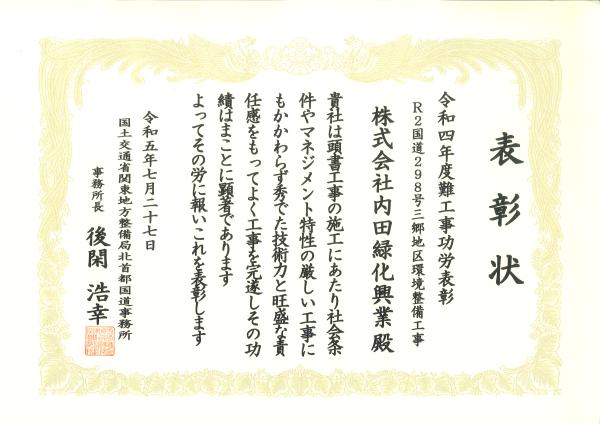 表彰状
令和四年度難工事功労表彰
R2国道298号三郷地区環境整備工事
株式会社内田緑化興業 殿
貴社は頭書工事の施工にあたり社会条
件やマネジメント特性の厳しい工事に
もかかわらず秀でた技術力と旺盛な責
任感をもってよく工事を完遂しその功
績はまことに顕著であります
よってその労に報いこれを表彰します
令和五年七月二十七日
国土交通省関東地方整備局北首都国道事務所
事務所長 後閑 浩幸